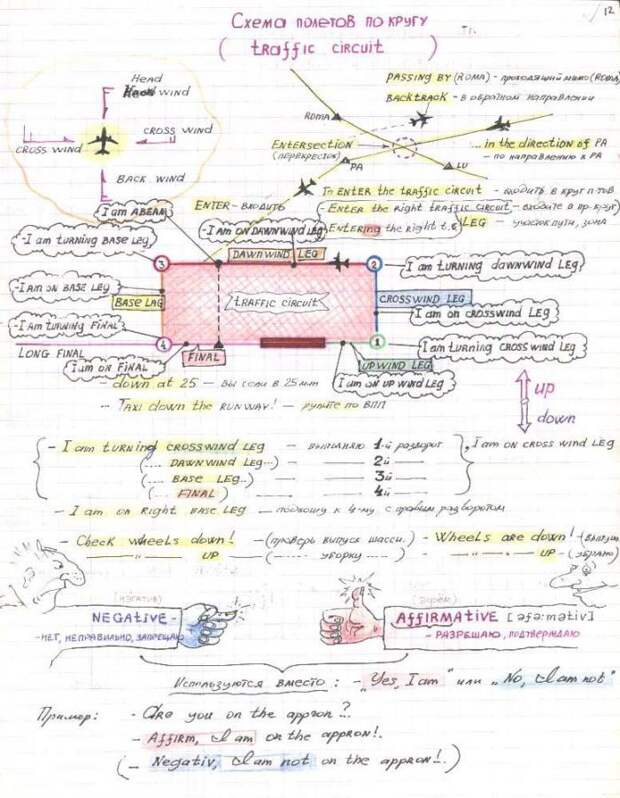 12
Схема полетов по кругу
( traffic circuit )
Head
Head wind
CROSS WIND
CROSS WIND
BACK WIND
PASSING BY (ROMA) - проходящий мимо (ROMA)
BACKTRACK - в обратном направлении
ROMA
ENTERSECTION
(перекресток)
PA
LU
... in the direction of PA
- по направлению к PA
To ENTER the traffic circuit - входить в круг п-тов
ENTER - входить
- ENTER the right traffic circuit - входите в пр. круг)
Entering the right t.c
LEG - участок пути, зона
I am ABEAM
- I am ON DAWNWIND LEG
DAWNWIND LEG
- I am turning BASE LEG
3
2
I am turning dawnwind LEG
- I am ON BASE LEG
BASE LAG
traffic circuit
CROSSWIND LEG
I am on crosswind LEG
- I am turning FINAL
4
1
I am turning CROSS WIND LEG
LONG FINAL
I am on FINAL
FINAL
UPWIND LEG
I am on UP WIND LEG
- down at 25 - вы сели в 25 мин
- Taxi down the RUNWAY! - рулите по ВПП
up
down
- I am turning CROSSWIND LEG - выполняю 1-й разворот, I am on CROSS WIND LEG
(.... DAWNWIND LEG...) - 2й
(... BASE LEG..) - 3й
(... FINAL) - 4й
- I am on Right BASE LEG - подхожу к 4-му с правым разворотом
- Check wheels down! - (проверь выпуск шасси.) - Wheels are down! (выпущ
UP - (... уборку ....) UP - (убрано)
(нэгатив)
NEGATIVE -
- НЕТ, НЕПРАВИЛЬНО, ЗАПРЕЩАЮ
(эфём)
AFFIRMATIVE [əfə:mətiv]
- РАЗРЕШАЮ, ПОДТВЕРЖДАЮ
Используются вместо : - „Yes, I am" или „No, I am not"
Пример: - Are you on the appron?.
- Affirm, I am on the appron!.
(- Negativ, I am not on the appron!.)